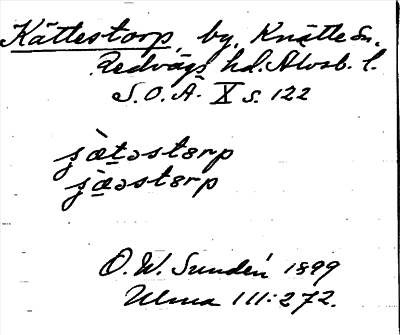 Kättestorp, by, Knätte sn.
Redvägs hd. Älvsb. l.
S.O.Ä. X s. 122
jæ̀təstɵrp
jæ̀əstɵrp
O. W. Sundén 1899
Ulma 111:272.